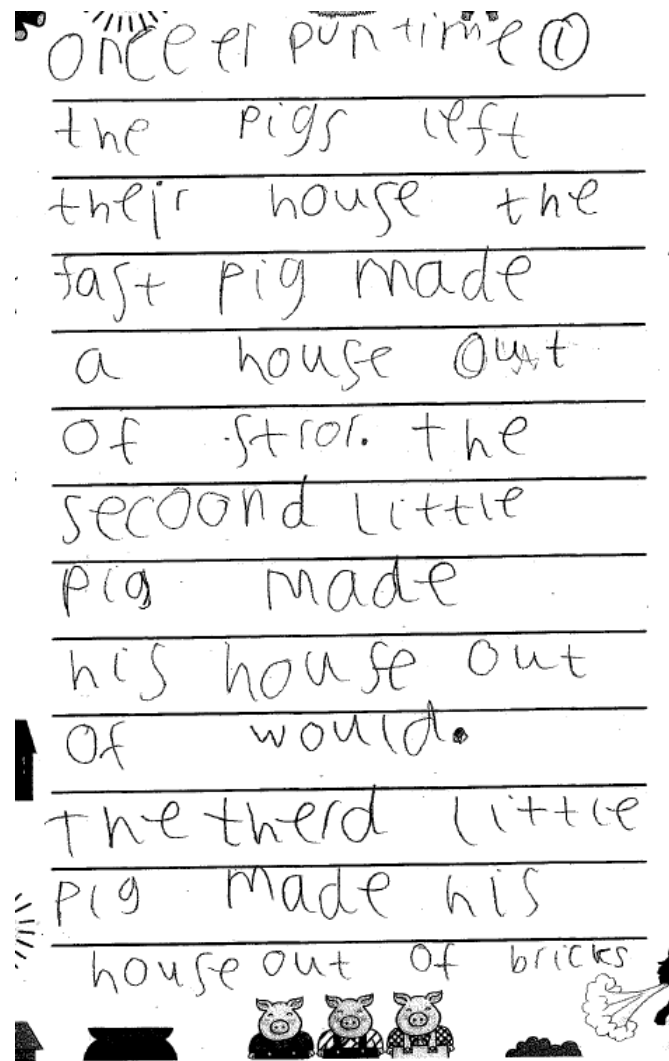 once er pun time ①
the pigs left
their house the
fast pig made
a house out
of stror. the
secoond little
pig made
his house out
of would.
the therd little
pig made his
house out of bricks